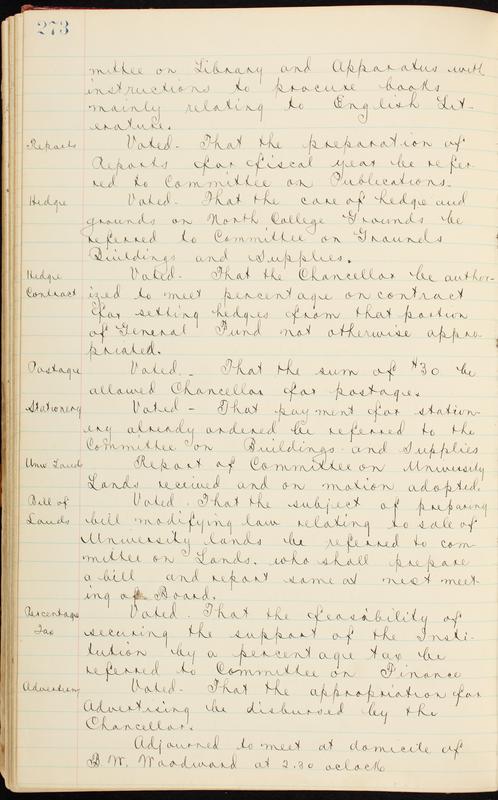 273
mittee on Library and Apparatus with
instructions to procure books
mainly relating to English Lit-
erature.
Reports Voted- That the preparation of
Reports for fiscal year be refer
red to Committee on Publications.
Hedge Voted- That the care of hedge and
grounds on North College Grounds be
referred to Committee on Grounds
Buildings and Supplies.
Hedge Voted- That the Chancellor be author-
Contract ized to meet percentage on contract
for setting hedges from that portion
of General Fund not otherwise appro-
priated.
Postage Voted- That the sum of $30 be
allowed Chancellor for postage.
Stationery Voted- That payment for station-
ery already ordered be referred to the
Committee on Buildings and Supplies
Univ Lands Report of Committee on University
Lands received and on motion adopted.
Bill of Voted. That the subject of preparing
Lands bill modifying law relating to sale of
University lands be referred to com-
mittee on Lands. who shall prepare
a bill and report same at next meet-
ing of Board.
Percentage Voted. That the feasibility of
Tax securing the support of the Insti-
tution by a percentage tax be
referred to Committee on Finance
Advertising Voted- That the appropriation for
Advertising be disbursed by the
Chancellor.
Adjourned to meet at domicile of
B.W. Woodward at 2.30 oclock